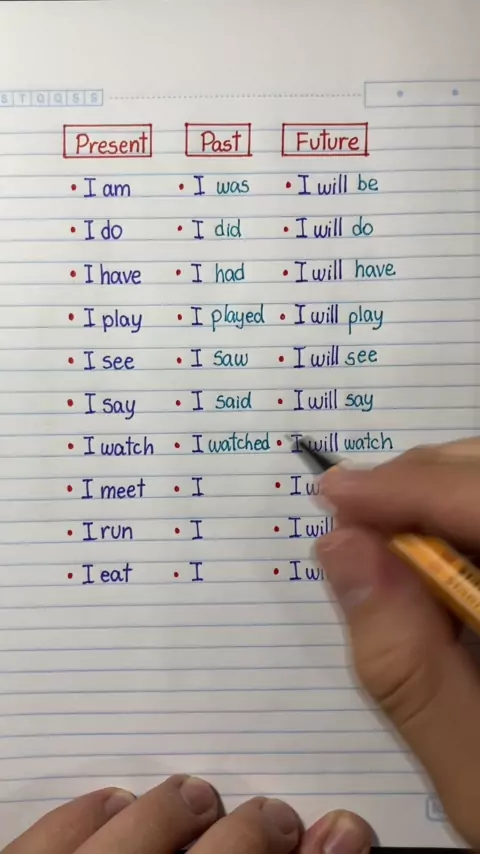 S T Q Q S S
Present Past Future
• I am • I was • I will be
• I do • I did • I will do
• I have • I had • I will have
• I play • I played • I will play
• I see • I saw • I will see
• I say • I said • I will say
• I watch • I watched • I will watch
• I meet • I • I
• I run • I • I will
• I eat • I • I